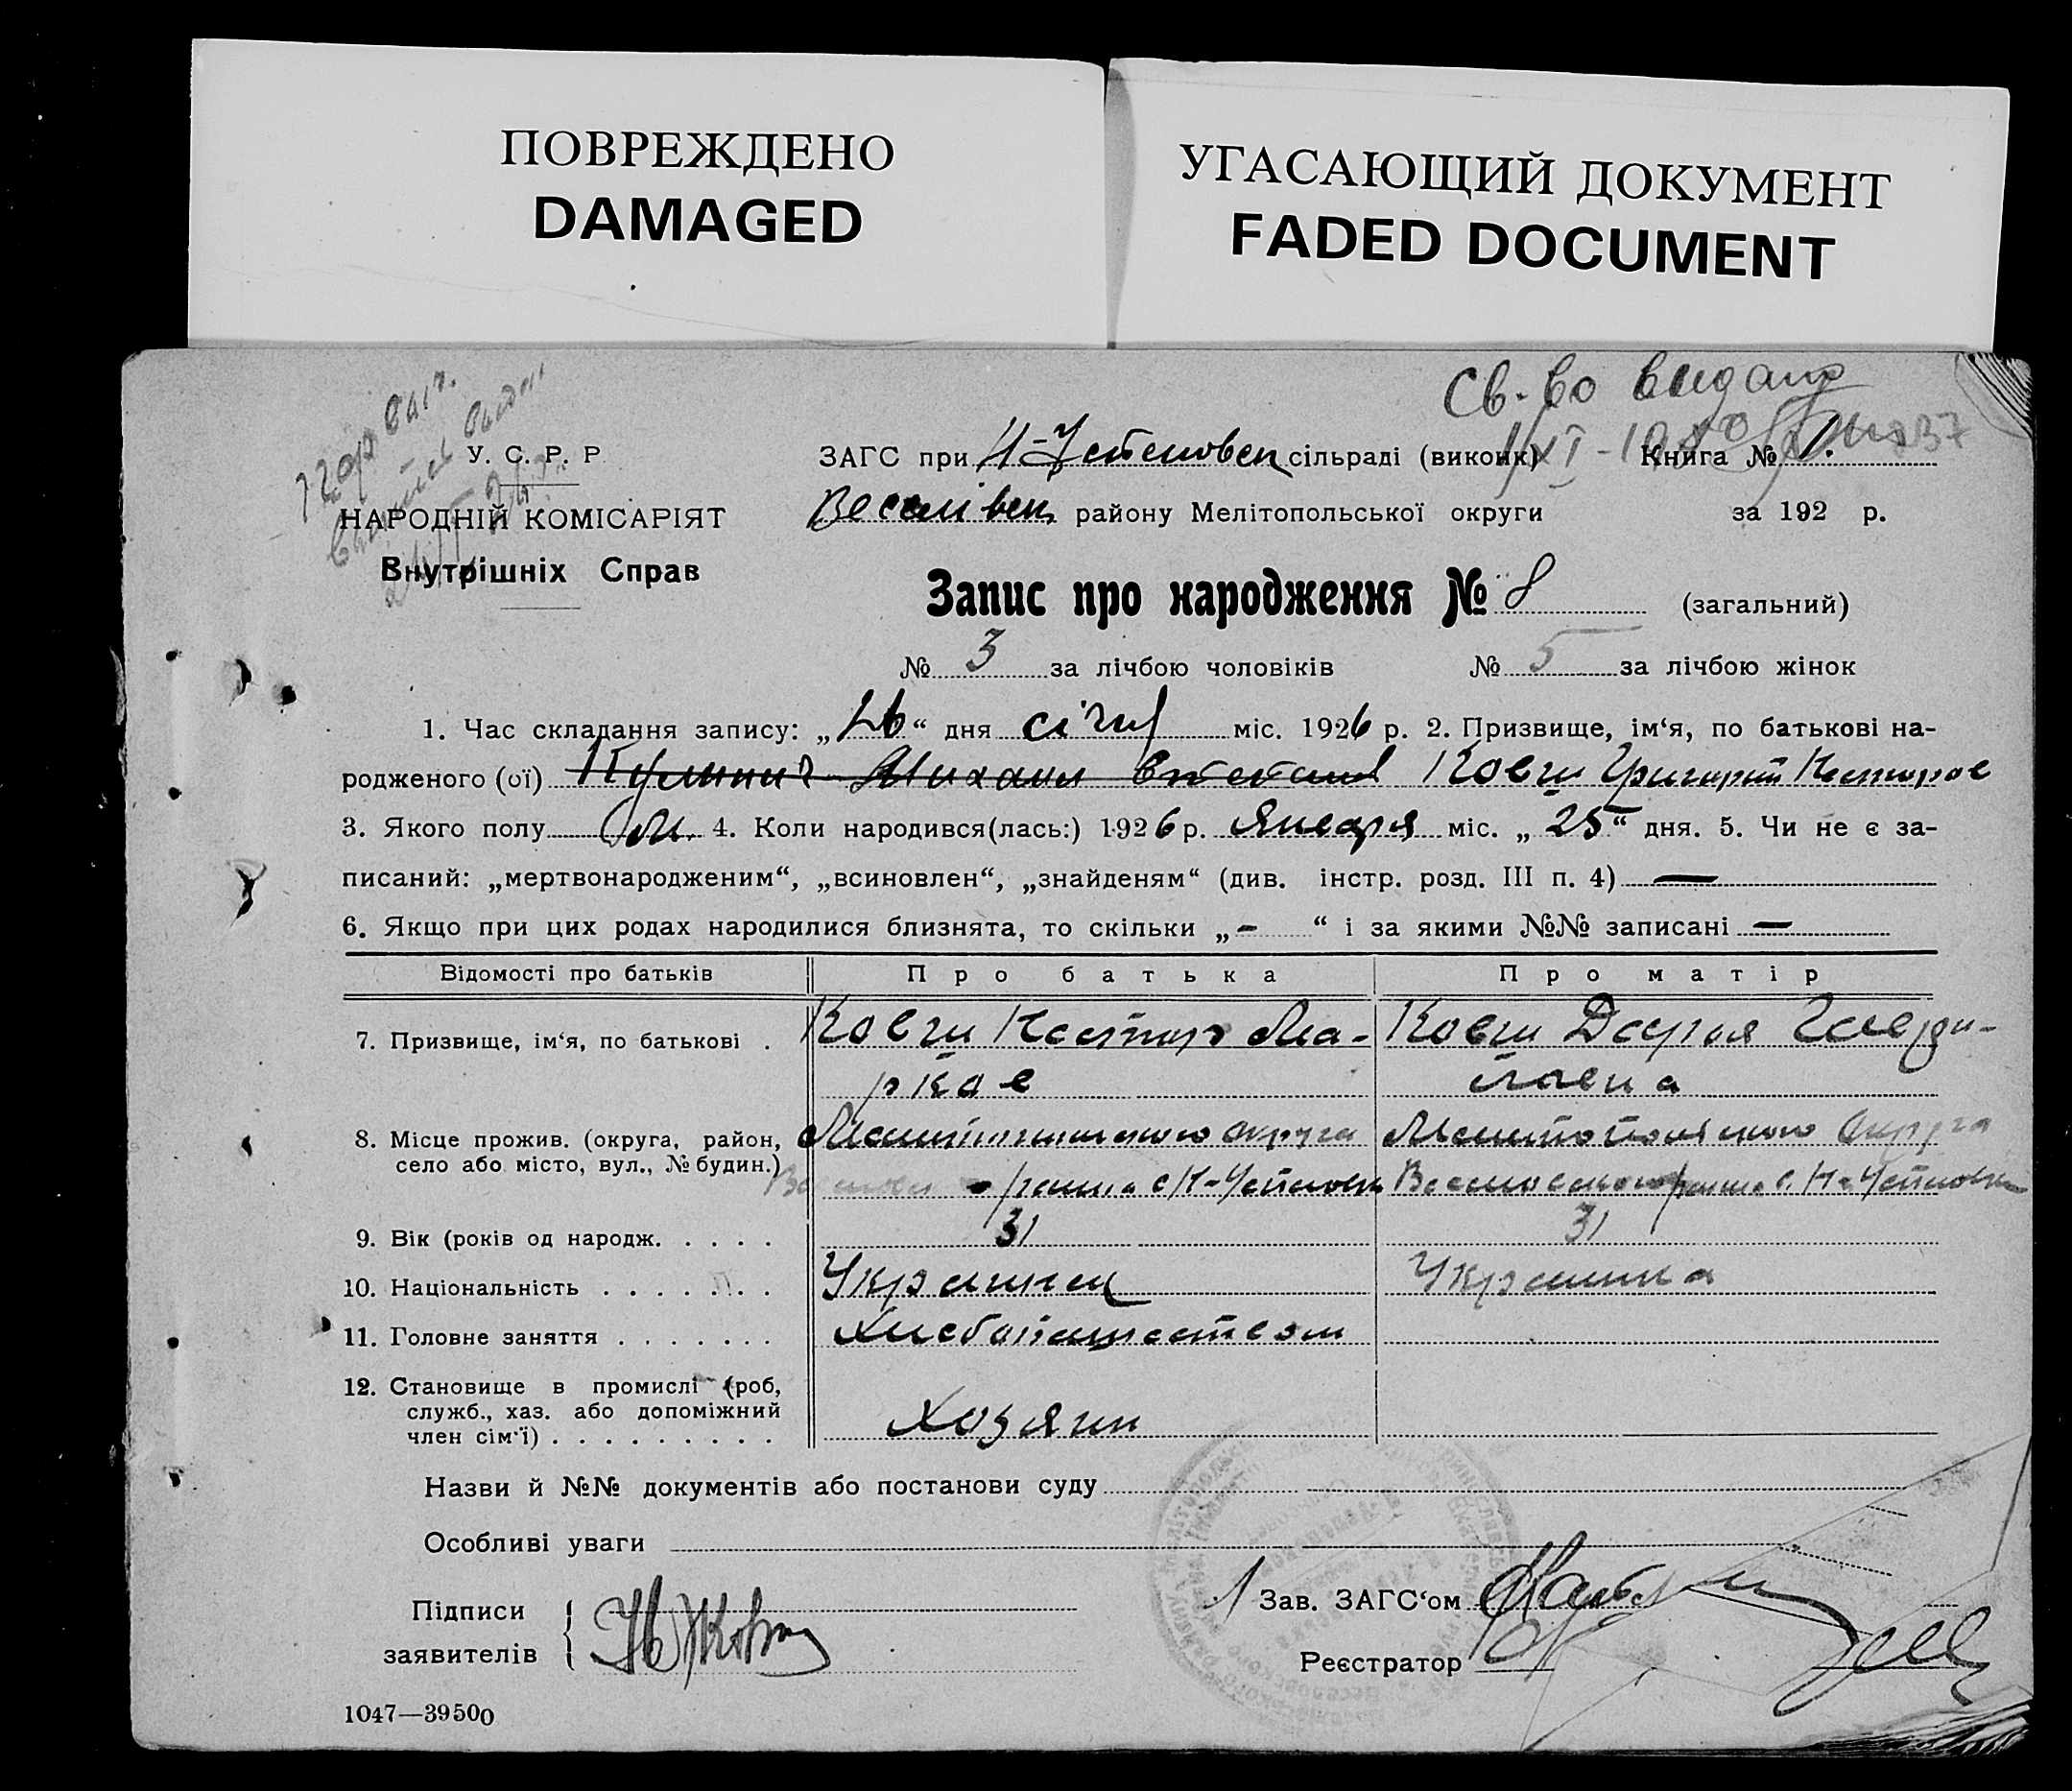 ПОВРЕЖДЕНО
DAMAGED
УГАСАЮЩИЙ ДОКУМЕНТ
FADED DOCUMENT
Св-во видано
У. С. Р. Р
НАРОДНІЙ КОМІСАРІЯТ
Внутрішніх Справ
ЗАГС при Н-Успеновск сільраді (виконк) Книга № 1.
Веселівск району Мелітопольської округи за 192 р.
Запис про народження № 8 (загальний)
№ 3 за лічбою чоловіків № 5 за лічбою жінок
1. Час складання запису: „26“ дня січня міс. 1926 р. 2. Призвище, ім‘я, по батькові на-
родженого (ої) Михаил Ковги Григорий Несторов
3. Якого полу М. 4. Коли народився(лась:) 1926 р. Января міс. „25“ дня. 5. Чи не є за-
писаний: „мертвонародженим“, „всиновлен“, „знайденям“ (див. інстр. розд. III п. 4) —
6. Якщо при цих родах народилися близнята, то скільки „-“ і за якими №№ записані —
Відомості про батьків Про батька Про матір
7. Призвище, ім‘я, по батькові . Ковги Нестор Ма- Ковги Дарья
рков
8. Місце прожив. (округа, район, село або місто, вул., № будин.) Мелитопольского округа Мелитопольского Округа
района с Н-Успеновки Веселовского района с. Н-Успеновки
9. Вік (років од народж. . . . . 31 31
10. Національність . . . . . . . Украинец Украинка
11. Головне заняття . . . . . . . Хлебопашеством
12. Становище в промислі (роб, служб., хаз. або допоміжний член сім‘ї) . . . . . . . . . Хозяин
Назви й №№ документів або постанови суду
Особливі уваги
Підписи заявителів
Зав. ЗАГС‘ом
Реєстратор
1047—39500